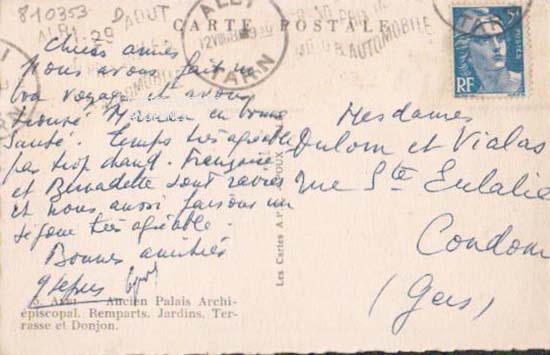 810353
CARTE POSTALE
ALBI
TARN
D'AOUT
AUTOMOBILE
POSTES
RF
Chères amies
Nous avons fait un
bon voyage et avons
trouvé Maman en bonne
santé. Temps très agréable
pas trop chaud. Françoise
et Bernadette sont ravies
et nous aussi faisons un
séjour très agréable.
Bonnes amitiés
Mesdames
Dulom et Vialas
rue Ste Eulalie
Condom
(Gers)
Les Cartes A.P.
Ancien Palais Archi-
épiscopal. Remparts. Jardins. Ter-
rasse et Donjon.